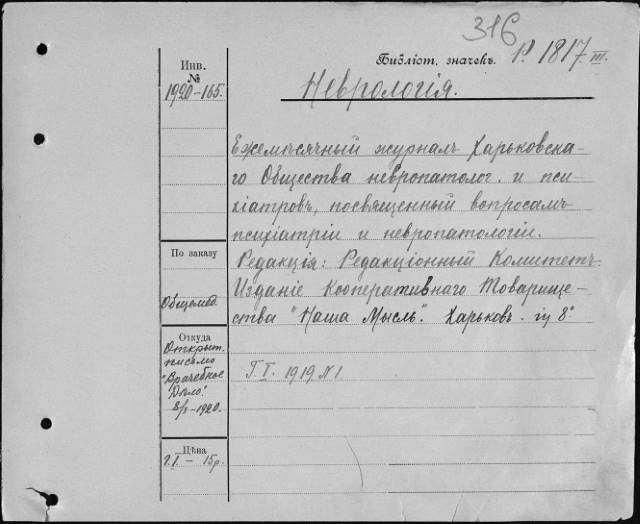 316
Библіот. значекъ. P. 1817 III.
Инв.
№
1920-165.
Неврологія.
Ежемѣсячный журналъ Харьковска-
го Общества невропатолог. и пси-
хіатровъ, посвященный вопросамъ
психіатріи и невропатологіи.
Редакція: Редакціонный Комитетъ.
Изданіе Кооперативнаго Товарище-
ства "Наша Мысль". Харьковъ. in 8°
По заказу
Общемед.
Откуда
Открыт.
письмо
"Врачебное
Дѣло".
1920.
Г. I. 1919 N 1.
Цѣна
Г. I. — 15 р.